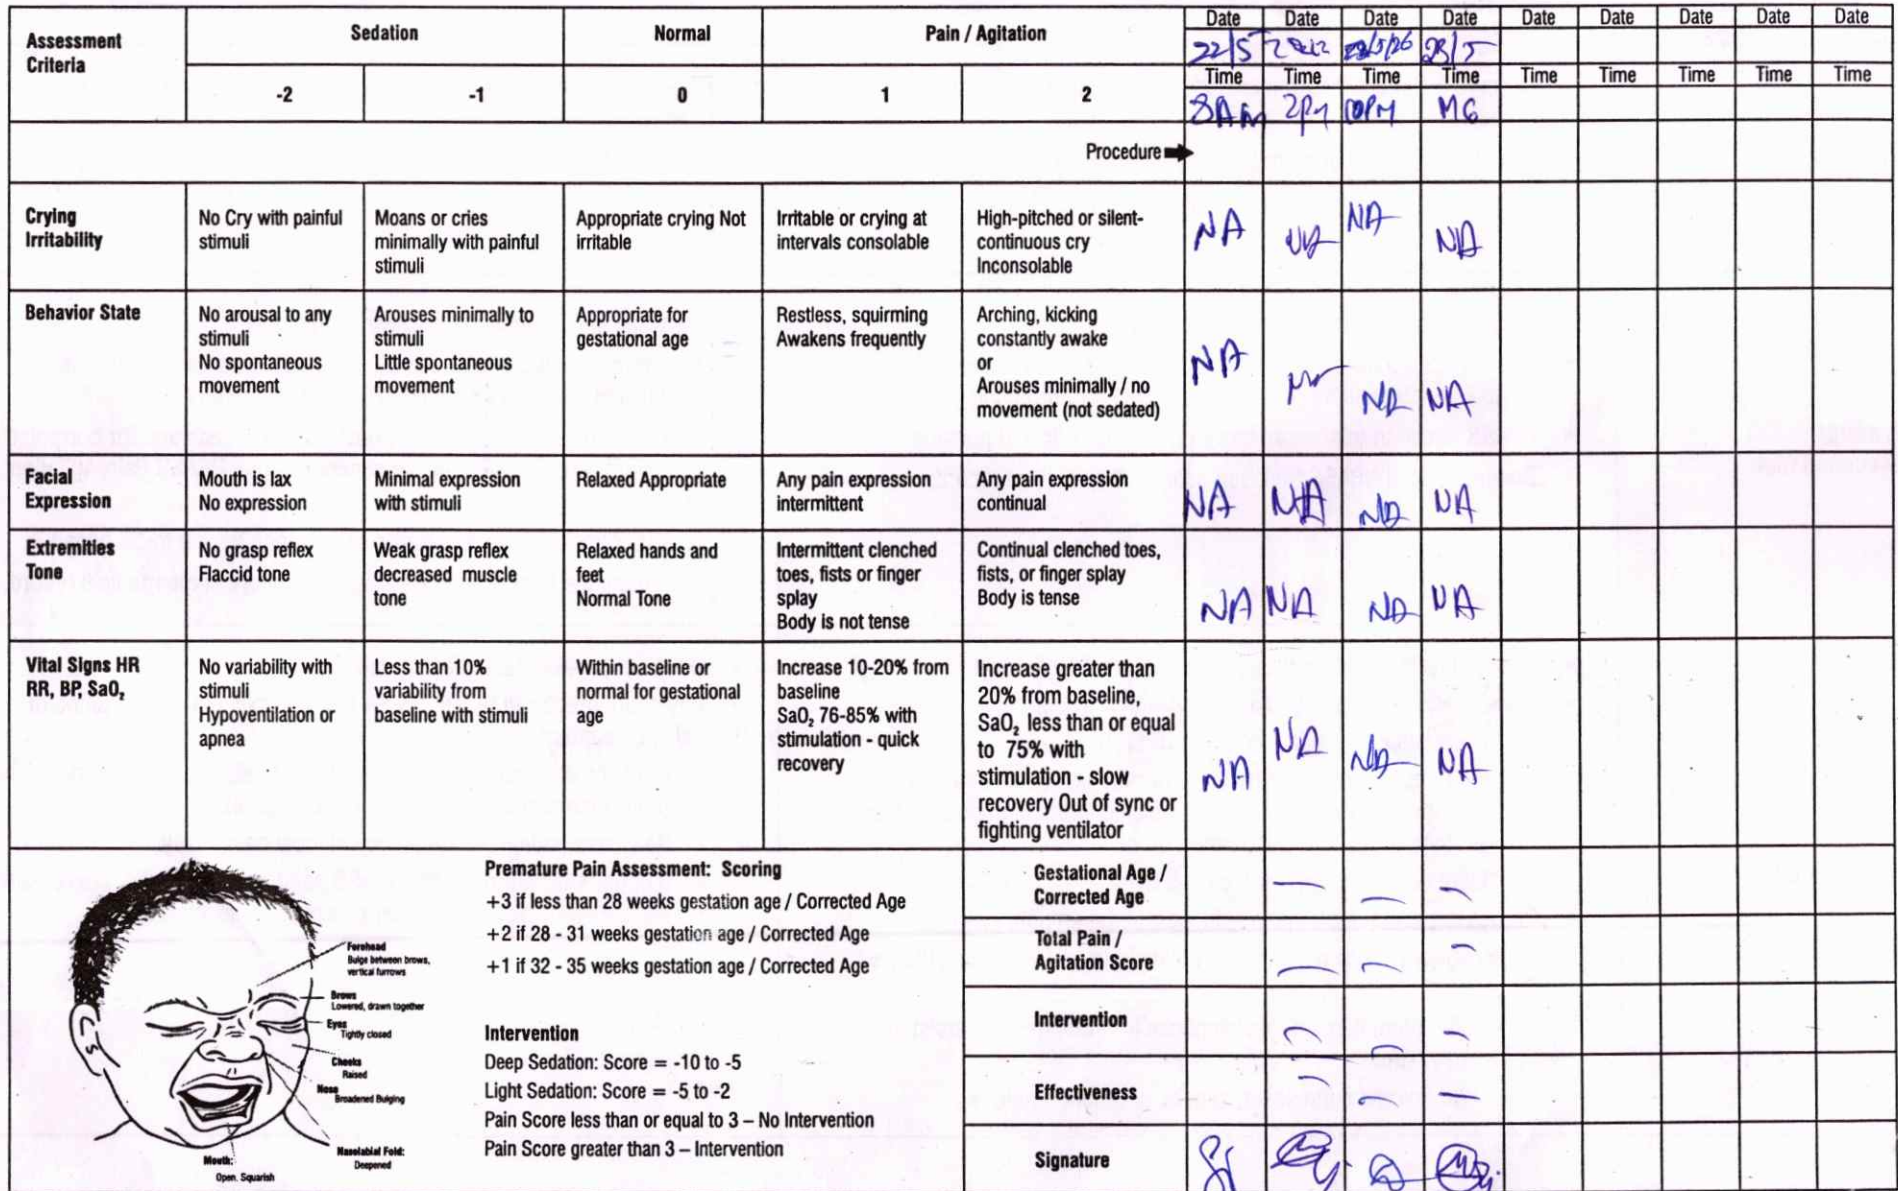 Assessment Criteria
Sedation
Normal
Pain / Agitation
Date Date Date Date Date Date Date Date Date
22/5 22/5/26 23/5
-2 -1 0 1 2
Time Time Time Time Time Time Time Time Time
8AM 2PM 10PM MG
Procedure
Crying
Irritability
No Cry with painful
stimuli
Moans or cries
minimally with painful
stimuli
Appropriate crying Not
irritable
Irritable or crying at
intervals consolable
High-pitched or silent-
continuous cry
Inconsolable
NA NA NA NA
Behavior State
No arousal to any
stimuli
No spontaneous
movement
Arouses minimally to
stimuli
Little spontaneous
movement
Appropriate for
gestational age
Restless, squirming
Awakens frequently
Arching, kicking
constantly awake
or
Arouses minimally / no
movement (not sedated)
NA NA NA
Facial
Expression
Mouth is lax
No expression
Minimal expression
with stimuli
Relaxed Appropriate
Any pain expression
intermittent
Any pain expression
continual
NA NA NA NA
Extremities
Tone
No grasp reflex
Flaccid tone
Weak grasp reflex
decreased muscle
tone
Relaxed hands and
feet
Normal Tone
Intermittent clenched
toes, fists or finger
splay
Body is not tense
Continual clenched toes,
fists, or finger splay
Body is tense
NA NA NA NA
Vital Signs HR
RR, BP, SaO₂
No variability with
stimuli
Hypoventilation or
apnea
Less than 10%
variability from
baseline with stimuli
Within baseline or
normal for gestational
age
Increase 10-20% from
baseline
SaO₂ 76-85% with
stimulation - quick
recovery
Increase greater than
20% from baseline,
SaO₂ less than or equal
to 75% with
stimulation - slow
recovery Out of sync or
fighting ventilator
NA NA NA NA
Forehead
Bulge between brows,
vertical furrows
Brows
Lowered, drawn together
Eyes
Tightly closed
Cheeks
Raised
Nose
Broadened Bulging
Nasolabial Fold:
Deepened
Mouth:
Open, Squarish
Premature Pain Assessment: Scoring
+3 if less than 28 weeks gestation age / Corrected Age
+2 if 28 - 31 weeks gestation age / Corrected Age
+1 if 32 - 35 weeks gestation age / Corrected Age
Intervention
Deep Sedation: Score = -10 to -5
Light Sedation: Score = -5 to -2
Pain Score less than or equal to 3 – No Intervention
Pain Score greater than 3 – Intervention
Gestational Age /
Corrected Age
Total Pain /
Agitation Score
Intervention
Effectiveness
Signature